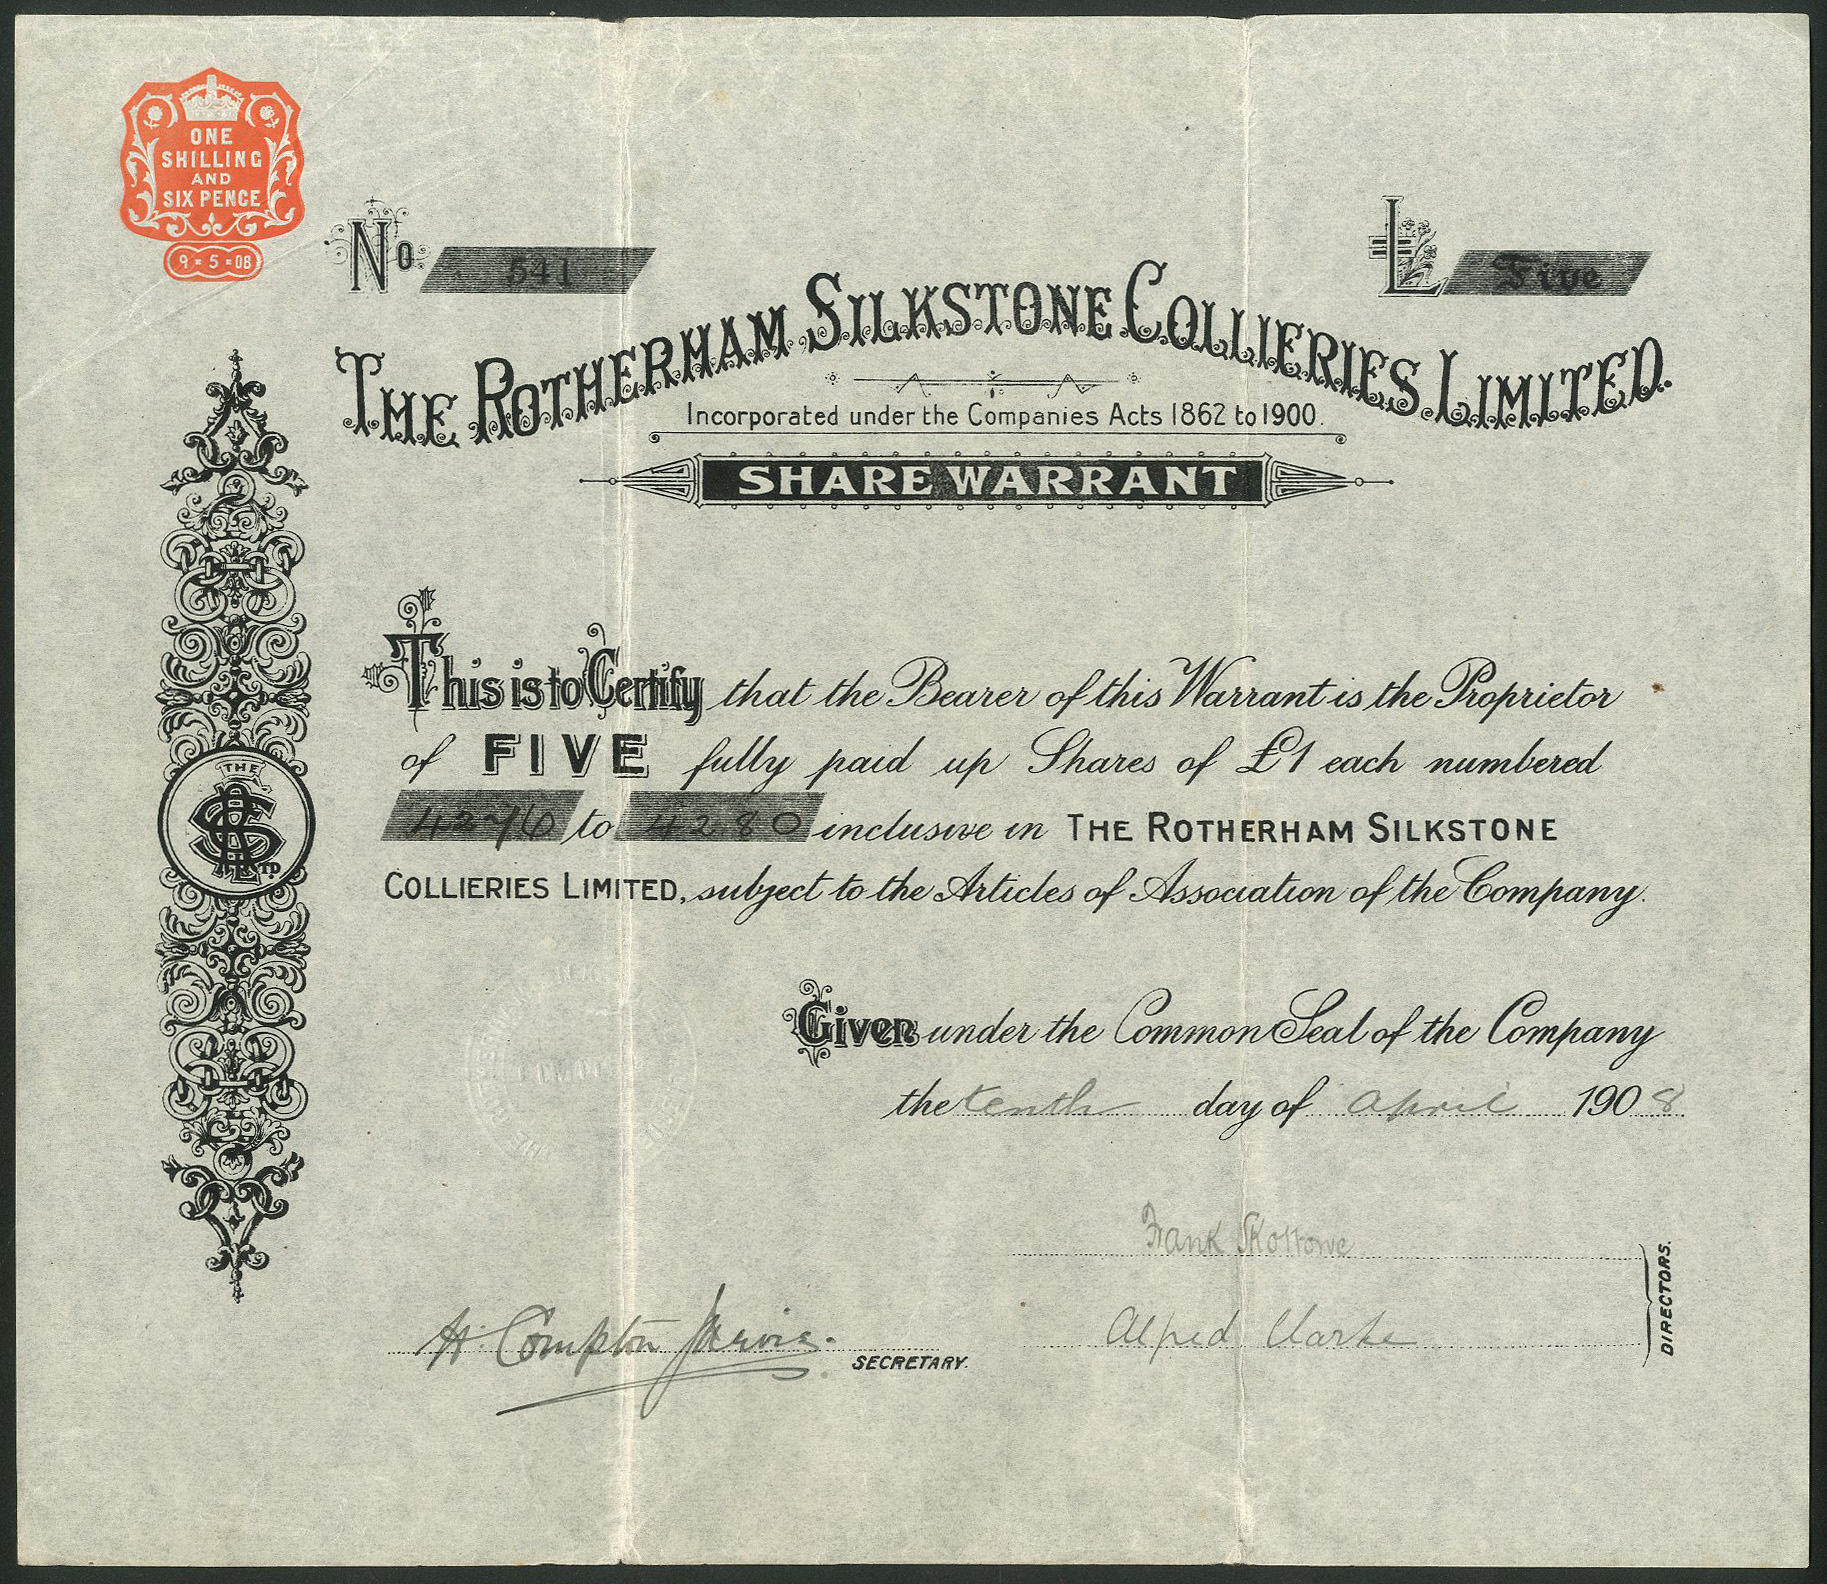 ONE
SHILLING
AND
SIX PENCE
9 · 5 · 08
No 541
£ Five
THE ROTHERHAM SILKSTONE COLLIERIES LIMITED.
Incorporated under the Companies Acts 1862 to 1900.
SHARE WARRANT
This is to Certify that the Bearer of this Warrant is the Proprietor
of FIVE fully paid up Shares of £1 each numbered
4276 to 4280 inclusive in THE ROTHERHAM SILKSTONE
COLLIERIES LIMITED, subject to the Articles of Association of the Company.
THE
LTD.
Given under the Common Seal of the Company
the tenth day of April 1908
Frank Skottowe
Alfred Clarke
DIRECTORS.
H. Compton Jarvis.
SECRETARY.